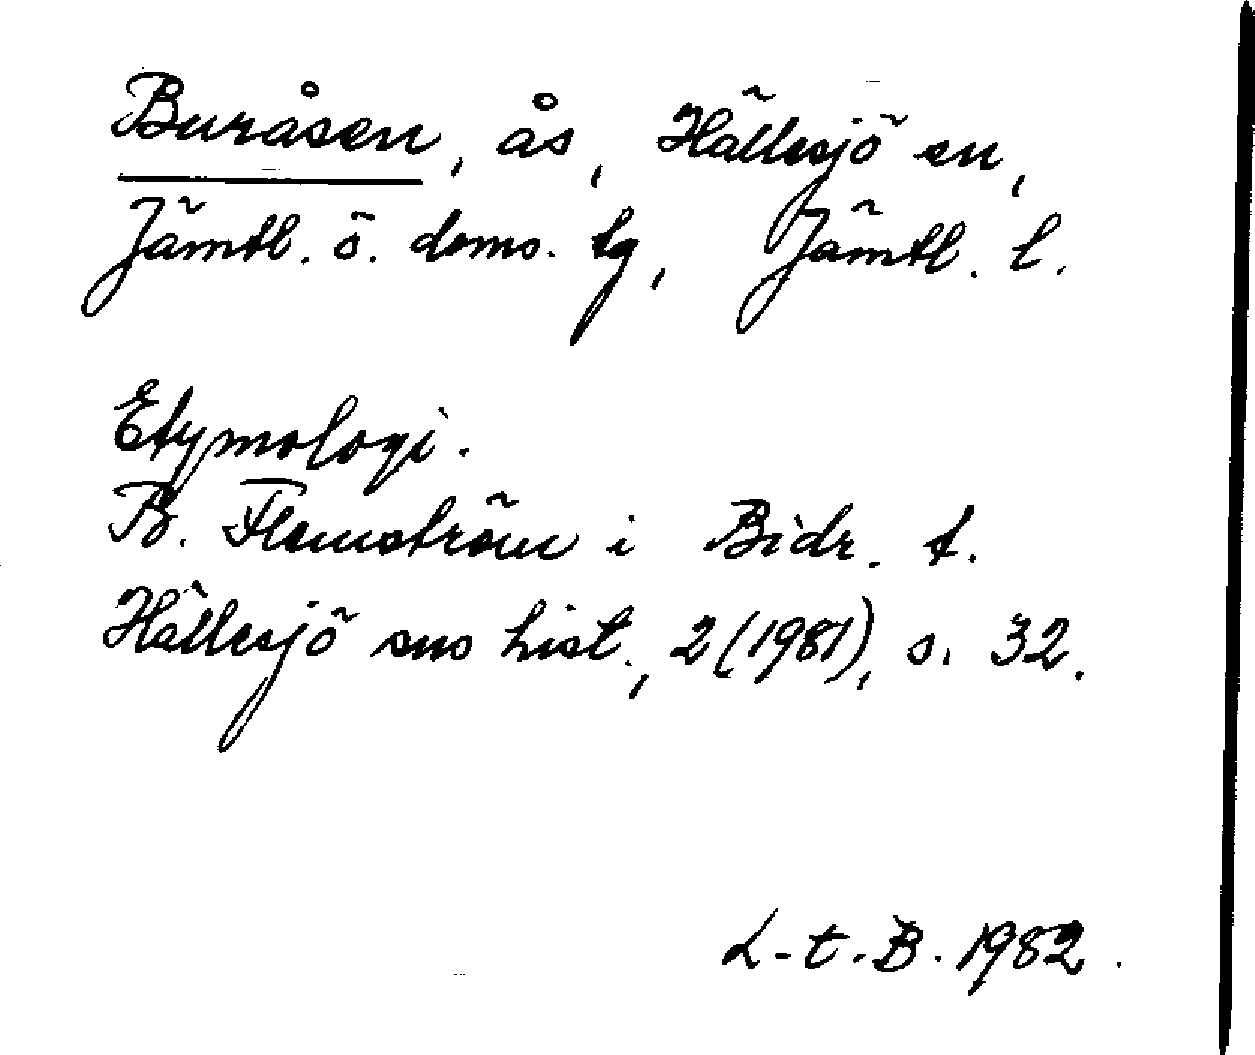 Buråsen, ås, Hällesjö sn,
Jämtl. ö. doms. tg, Jämtl. l.
Etymologi.
B. Flemström i Bidr. t.
Hällesjö sns hist., 2 (1981), s. 32.
L-t. B. 1982.